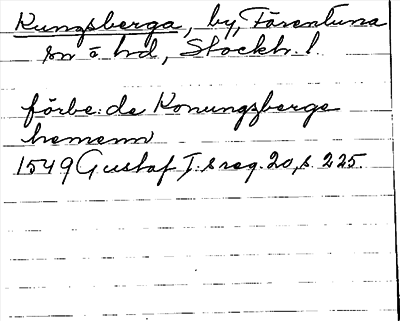 Kungsberga, by, Färentuna
sn o hd, Stockh. l.
förbe: de Konungzberge
hemenn
1549 Gustaf I:s reg. 20, s. 225.